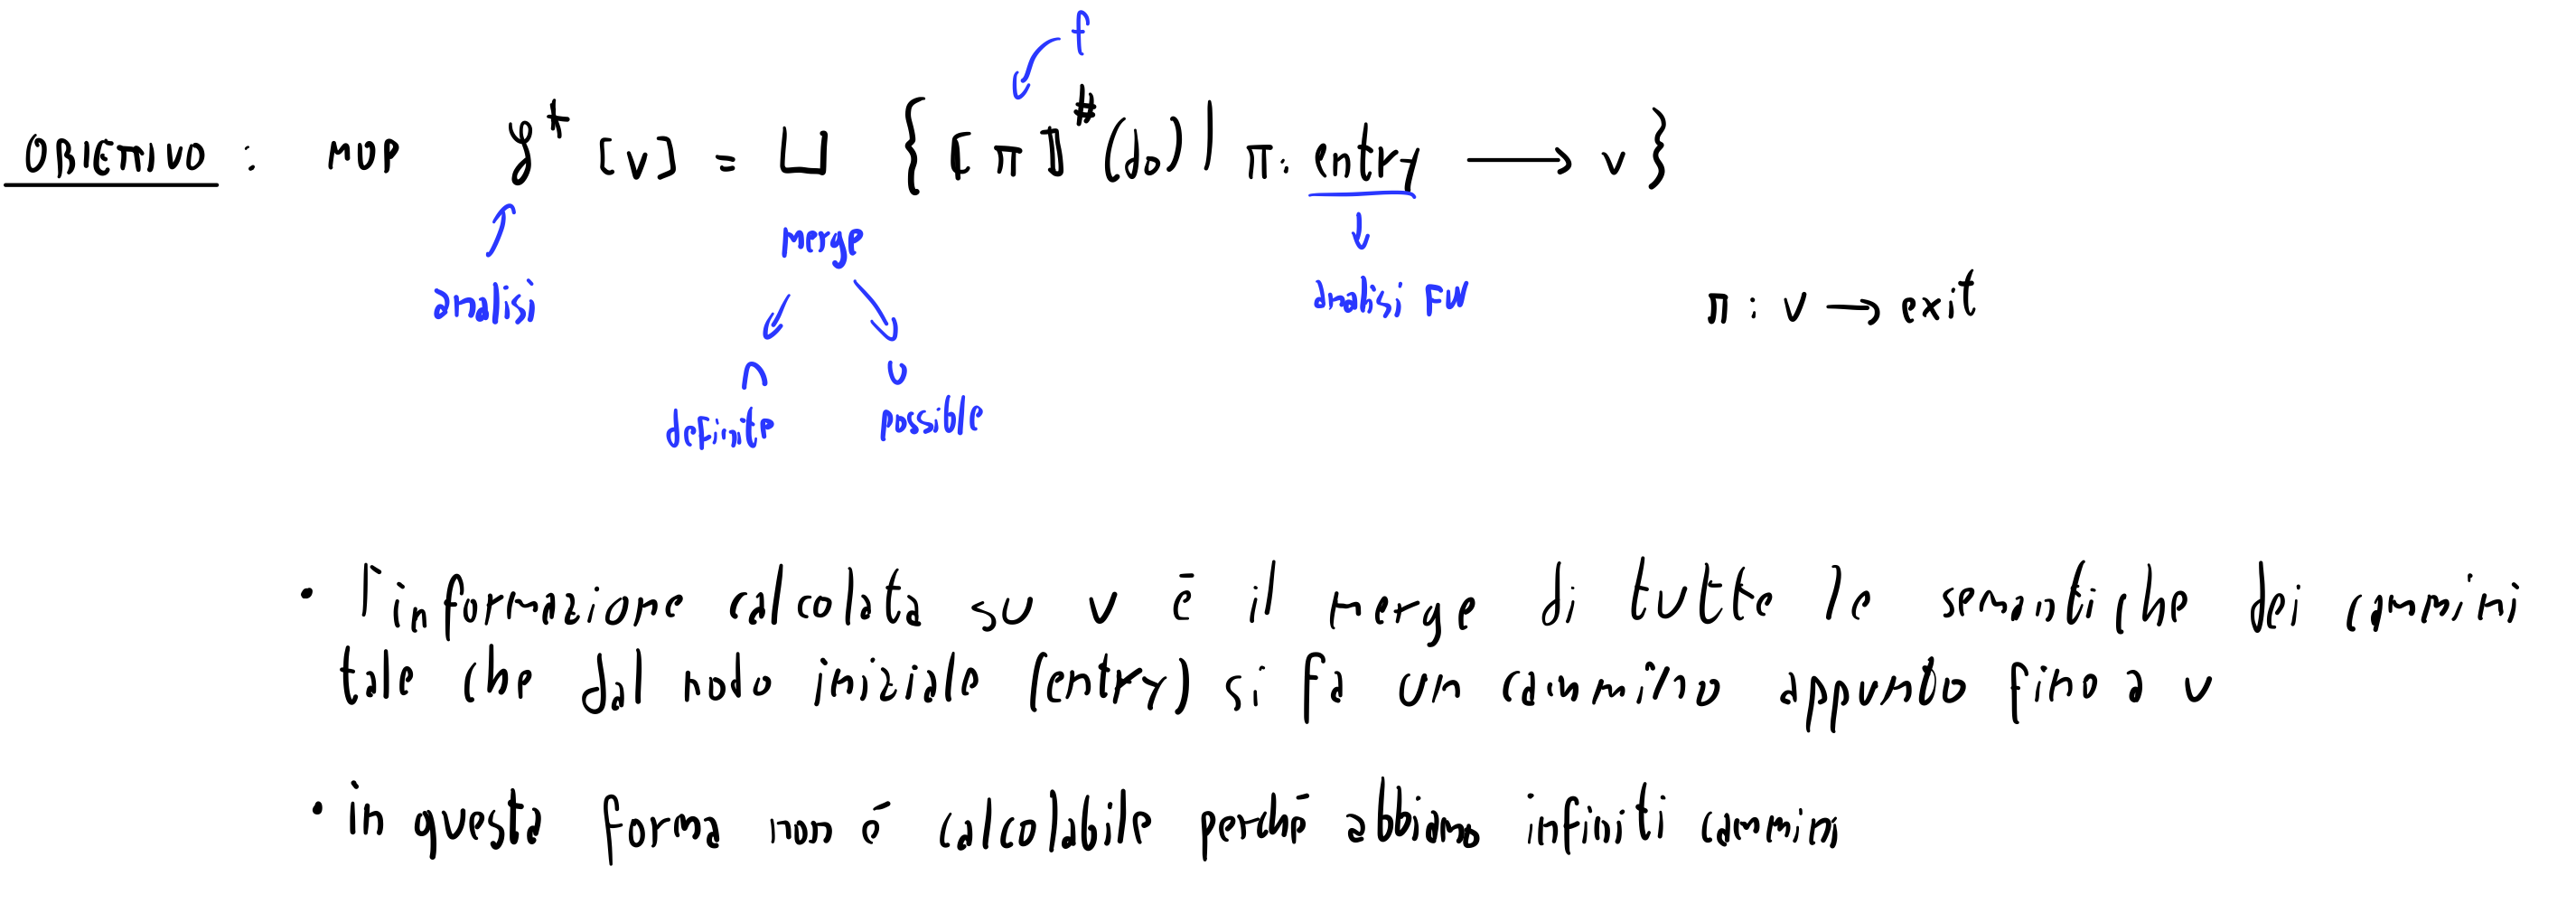 f
OBIETTIVO : MOP 𝒴* [v] = ⊔ { ⟦π⟧# (d0) | π: entry → v }
merge
analisi
analisi FW
π : v → exit
∩ ∪
definite possible
• l'informazione calcolata su v é il merge di tutte le semantiche dei cammini
tale che dal nodo iniziale (entry) si fa un cammino appunto fino a v
• in questa forma non é calcolabile perché abbiamo infiniti cammini